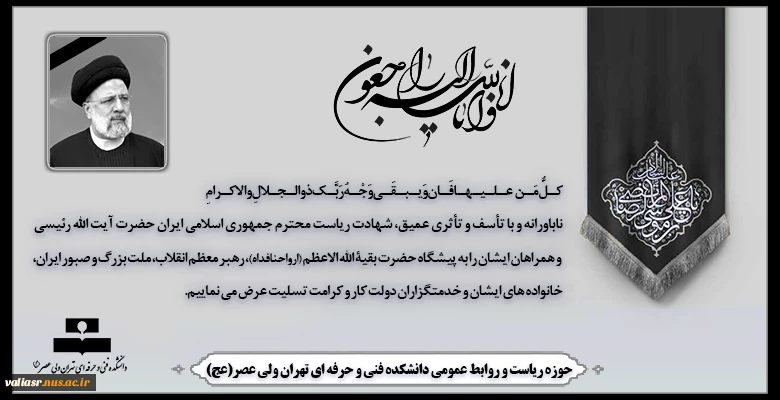 انا لله و انا الیه راجعون
کلُّ مَن علیها فَان وَ یبقَی وَجْهُ رَبِّک ذوالجلالِ والاکرامِ
ناباورانه و با تأسف و تأثری عمیق، شهادت ریاست محترم جمهوری اسلامی ایران حضرت آیت الله رئیسی
و همراهان ایشان را به پیشگاه حضرت بقیة الله الاعظم (ارواحنا فداه)، رهبر معظم انقلاب، ملت بزرگ و صبور ایران،
خانواده های ایشان و خدمتگزاران دولت کار و کرامت تسلیت عرض می نماییم.
حوزه ریاست و روابط عمومی دانشکده فنی و حرفه ای تهران ولی عصر(عج)
دانشکده فنی و حرفه ای تهران ولی عصر
valiasr.nus.ac.ir